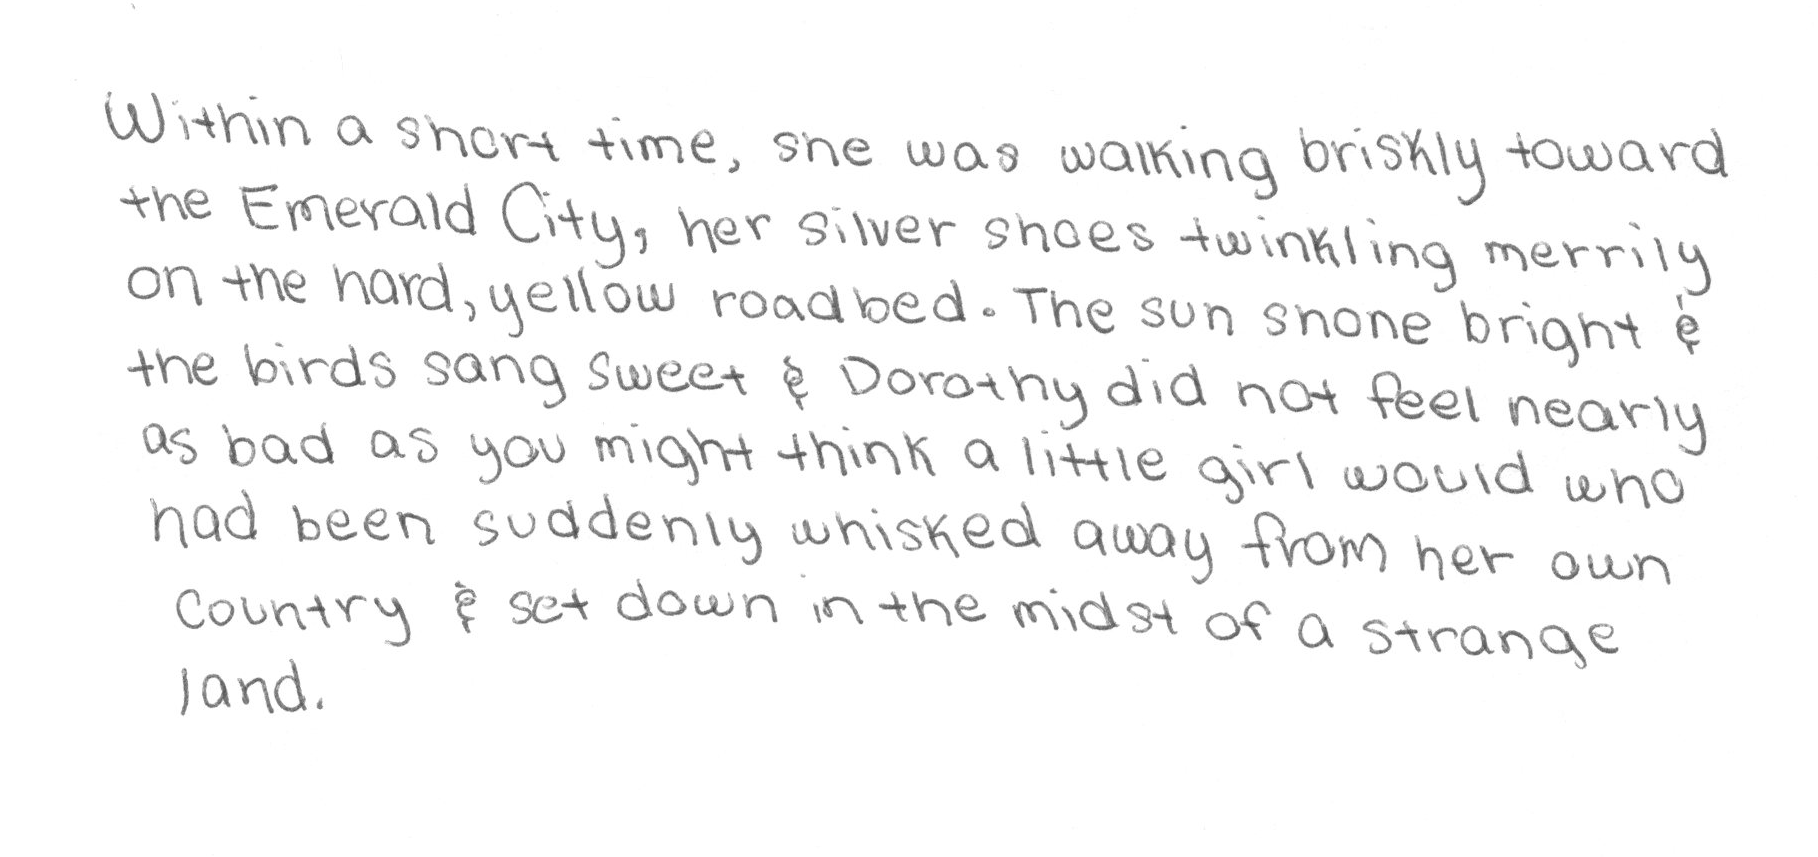 Within a short time, she was walking briskly toward
the Emerald City, her silver shoes twinkling merrily
on the hard, yellow roadbed. The sun shone bright &
the birds sang sweet & Dorothy did not feel nearly
as bad as you might think a little girl would who
had been suddenly whisked away from her own
country & set down in the midst of a strange
land.